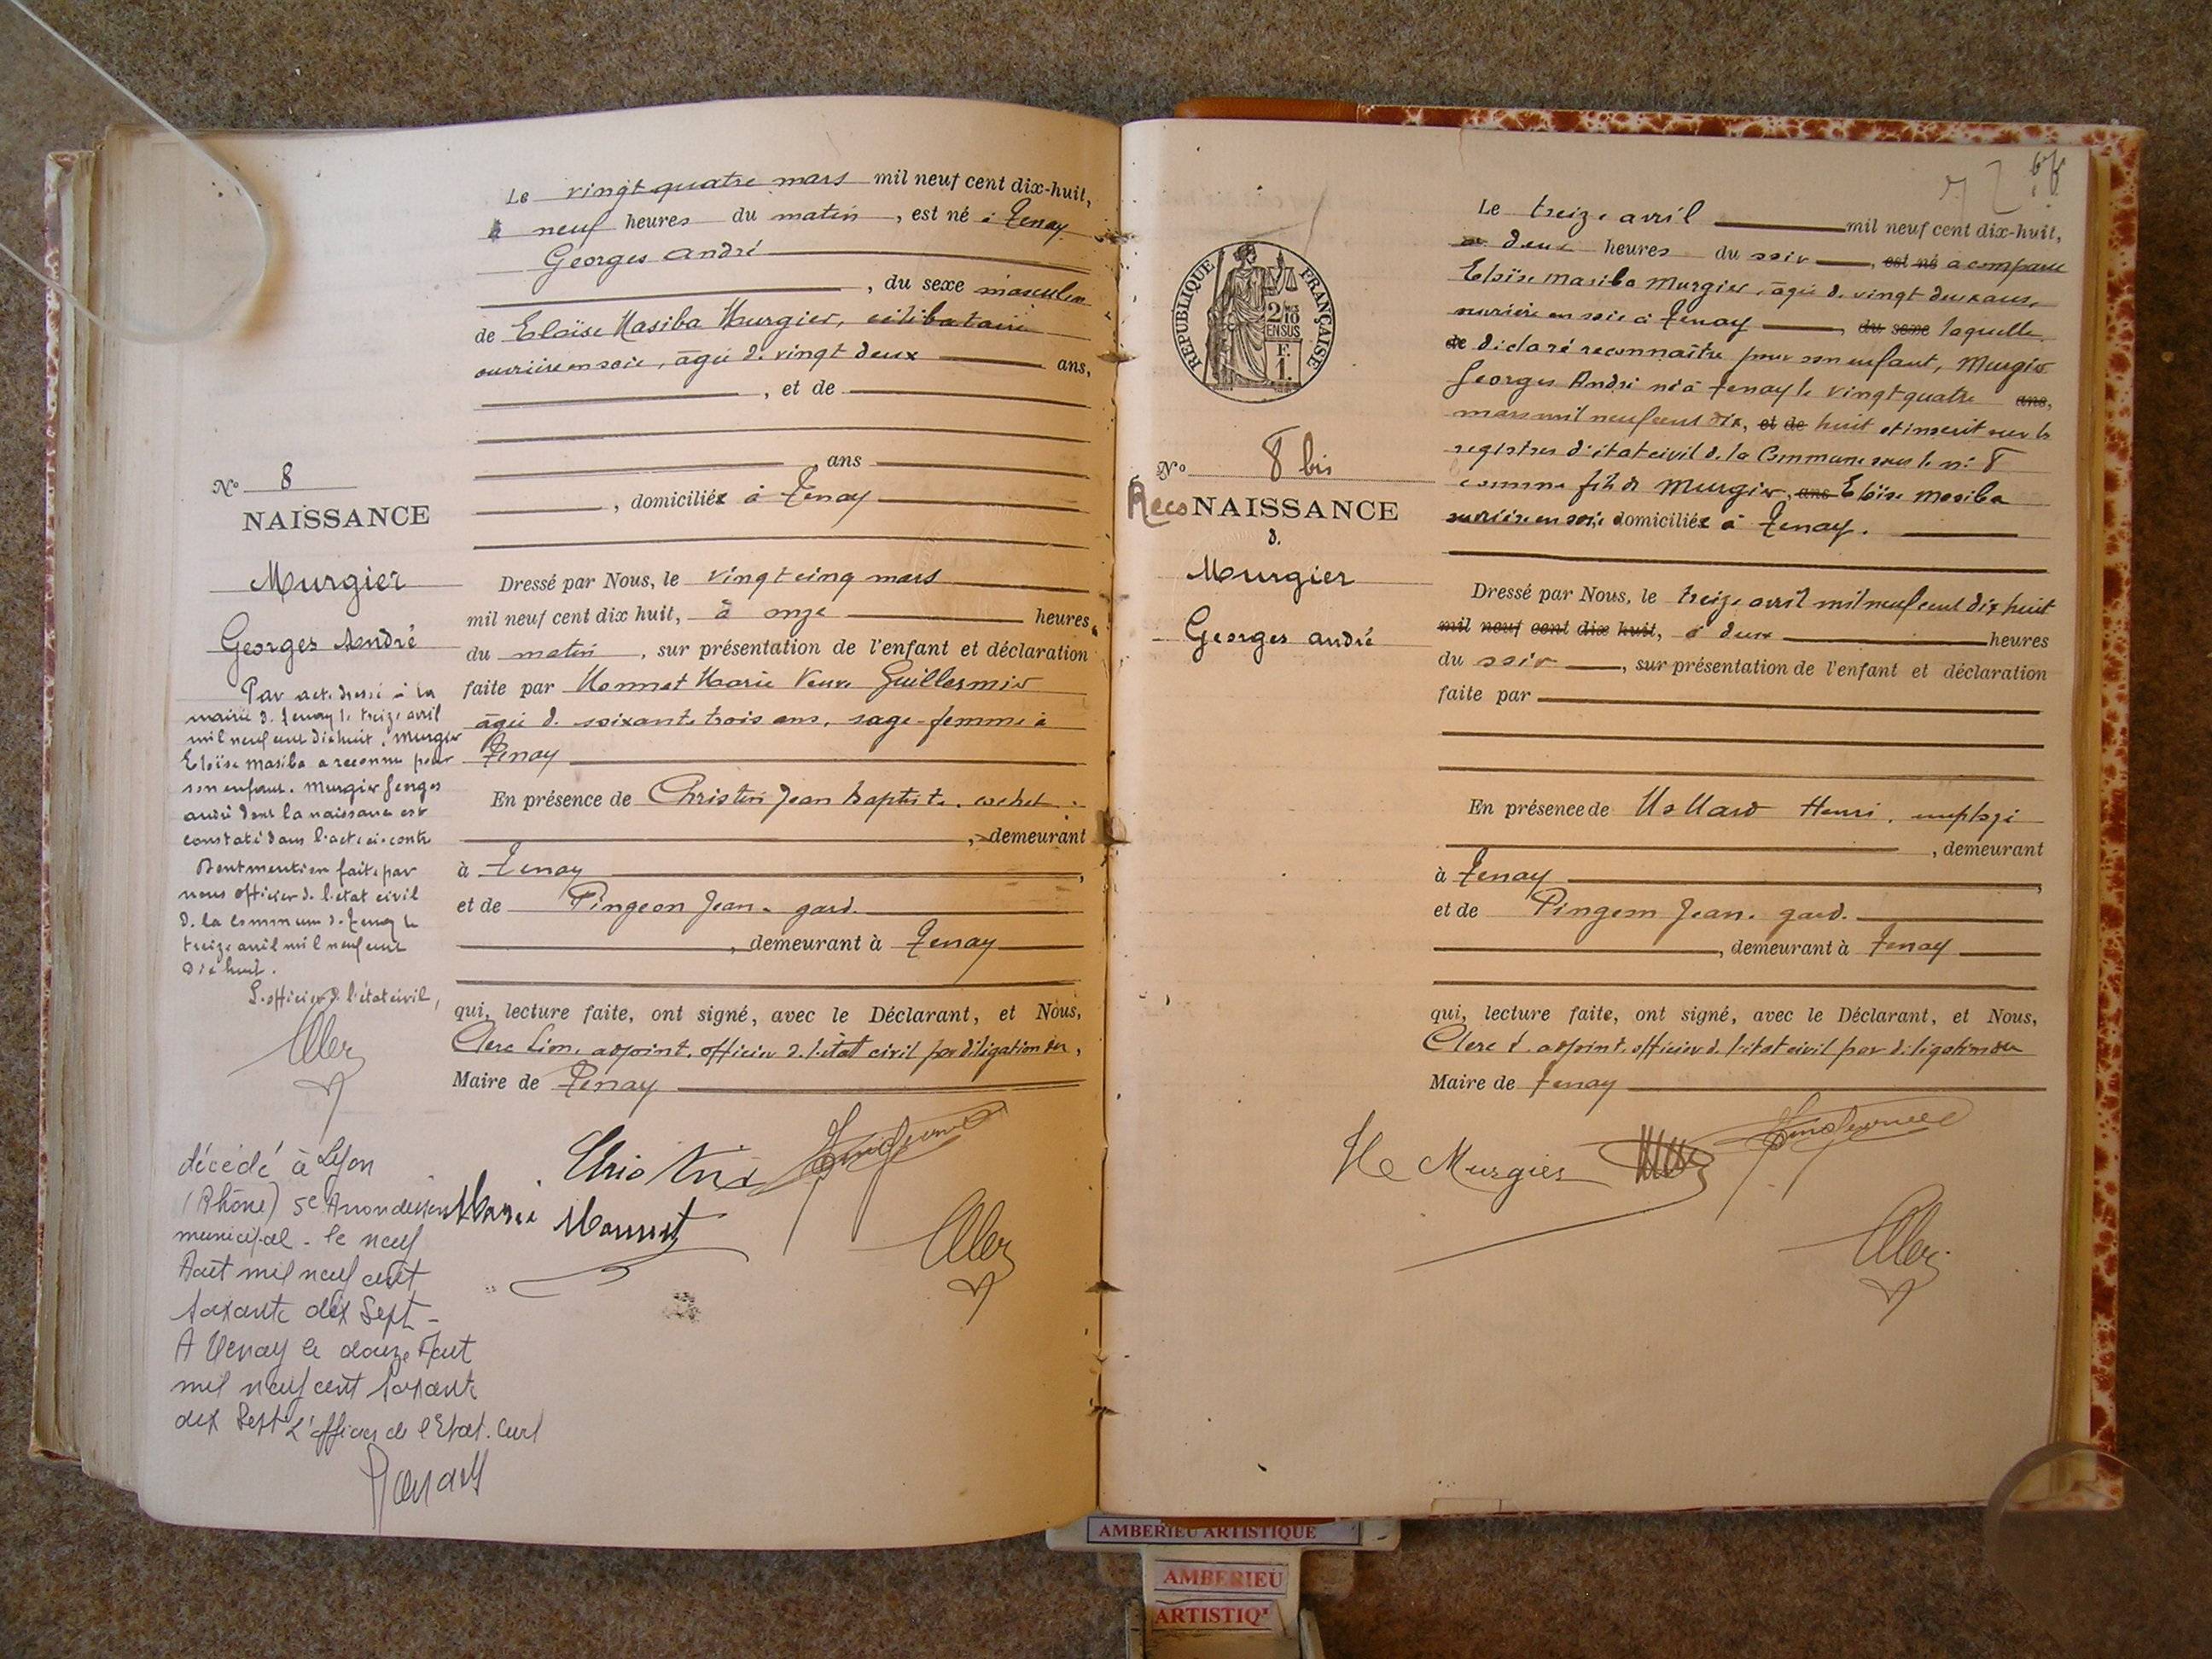 N° 8
NAISSANCE
Murgier
Georges André
Par acte dressé à la
mairie de Tenay le treize avril
mil neuf cent dix huit, Murgier
Eloïse Masiba a reconnu pour
son enfant, Murgier Georges
André dont la naissance est
constatée dans l'acte ci-contre
Dont mention faite par
nous officier de l'état civil
de la commune de Tenay le
treize avril mil neuf cent
dix huit.
L'officier de l'état civil,
décédé à Lyon
(Rhône) 5e Arrondissement
municipal - le neuf
Aout mil neuf cent
soixante dix Sept -
A Tenay le douze Aout
mil neuf cent soixante
dix Sept L'officier de l'Etat. Civil
Le vingt quatre mars mil neuf cent dix-huit,
à neuf heures du matin, est né à Tenay
Georges André
, du sexe masculin
de Eloïse Masiba Murgier, célibataire
ouvrière en soie, âgée de vingt deux ans,
, et de
ans
, domiciliée à Tenay
Dressé par Nous, le vingt cinq mars
mil neuf cent dix huit, à onze heures
du matin, sur présentation de l'enfant et déclaration
faite par Monnet Marie Veuve Guillermin
âgée de soixante trois ans, sage-femme à
Tenay
En présence de Christin Jean Baptiste, cocher
, demeurant
à Tenay
et de Pingeon Jean, garde
, demeurant à Tenay
qui, lecture faite, ont signé, avec le Déclarant, et Nous,
Clerc Léon, adjoint, officier de l'état civil par délégation du,
Maire de Tenay
Christin
Marie Monnet
REPUBLIQUE FRANÇAISE
2/10 EN SUS
F. 1.
N° 8 bis
RecoNAISSANCE
de
Murgier
Georges André
Le treize avril mil neuf cent dix-huit,
à deux heures du soir, est né a comparu
Eloïse Masiba Murgier, âgée de vingt deux ans,
ouvrière en soie à Tenay, du sexe laquelle
de déclaré reconnaître pour son enfant, Murgier
Georges André né à Tenay le vingt quatre ans,
mars mil neuf cent dix, et de huit et inscrit sur les
registres d'état civil de la Commune sous le n° 8
comme fils de Murgier, ans Eloïse Masiba
ouvrière en soie domiciliée à Tenay.
Dressé par Nous, le treize avril mil neuf cent dix huit
mil neuf cent dix huit, à deux heures
du soir, sur présentation de l'enfant et déclaration
faite par
En présence de Mallard Henri, employé
, demeurant
à Tenay
et de Pingeon Jean, garde
, demeurant à Tenay
qui, lecture faite, ont signé, avec le Déclarant, et Nous,
Clerc L. adjoint, officier de l'état civil par délégation du
Maire de Tenay
He Murgier
AMBERIEU ARTISTIQUE
AMBERIEU
ARTISTIQ